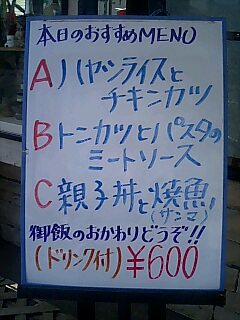 本日のおすすめMENU
A ハヤシライスと
チキンカツ
B トンカツとパスタの
ミートソース
C 親子丼と焼魚
(サンマ)
御飯のおかわりどうぞ!!
(ドリンク付) ¥600